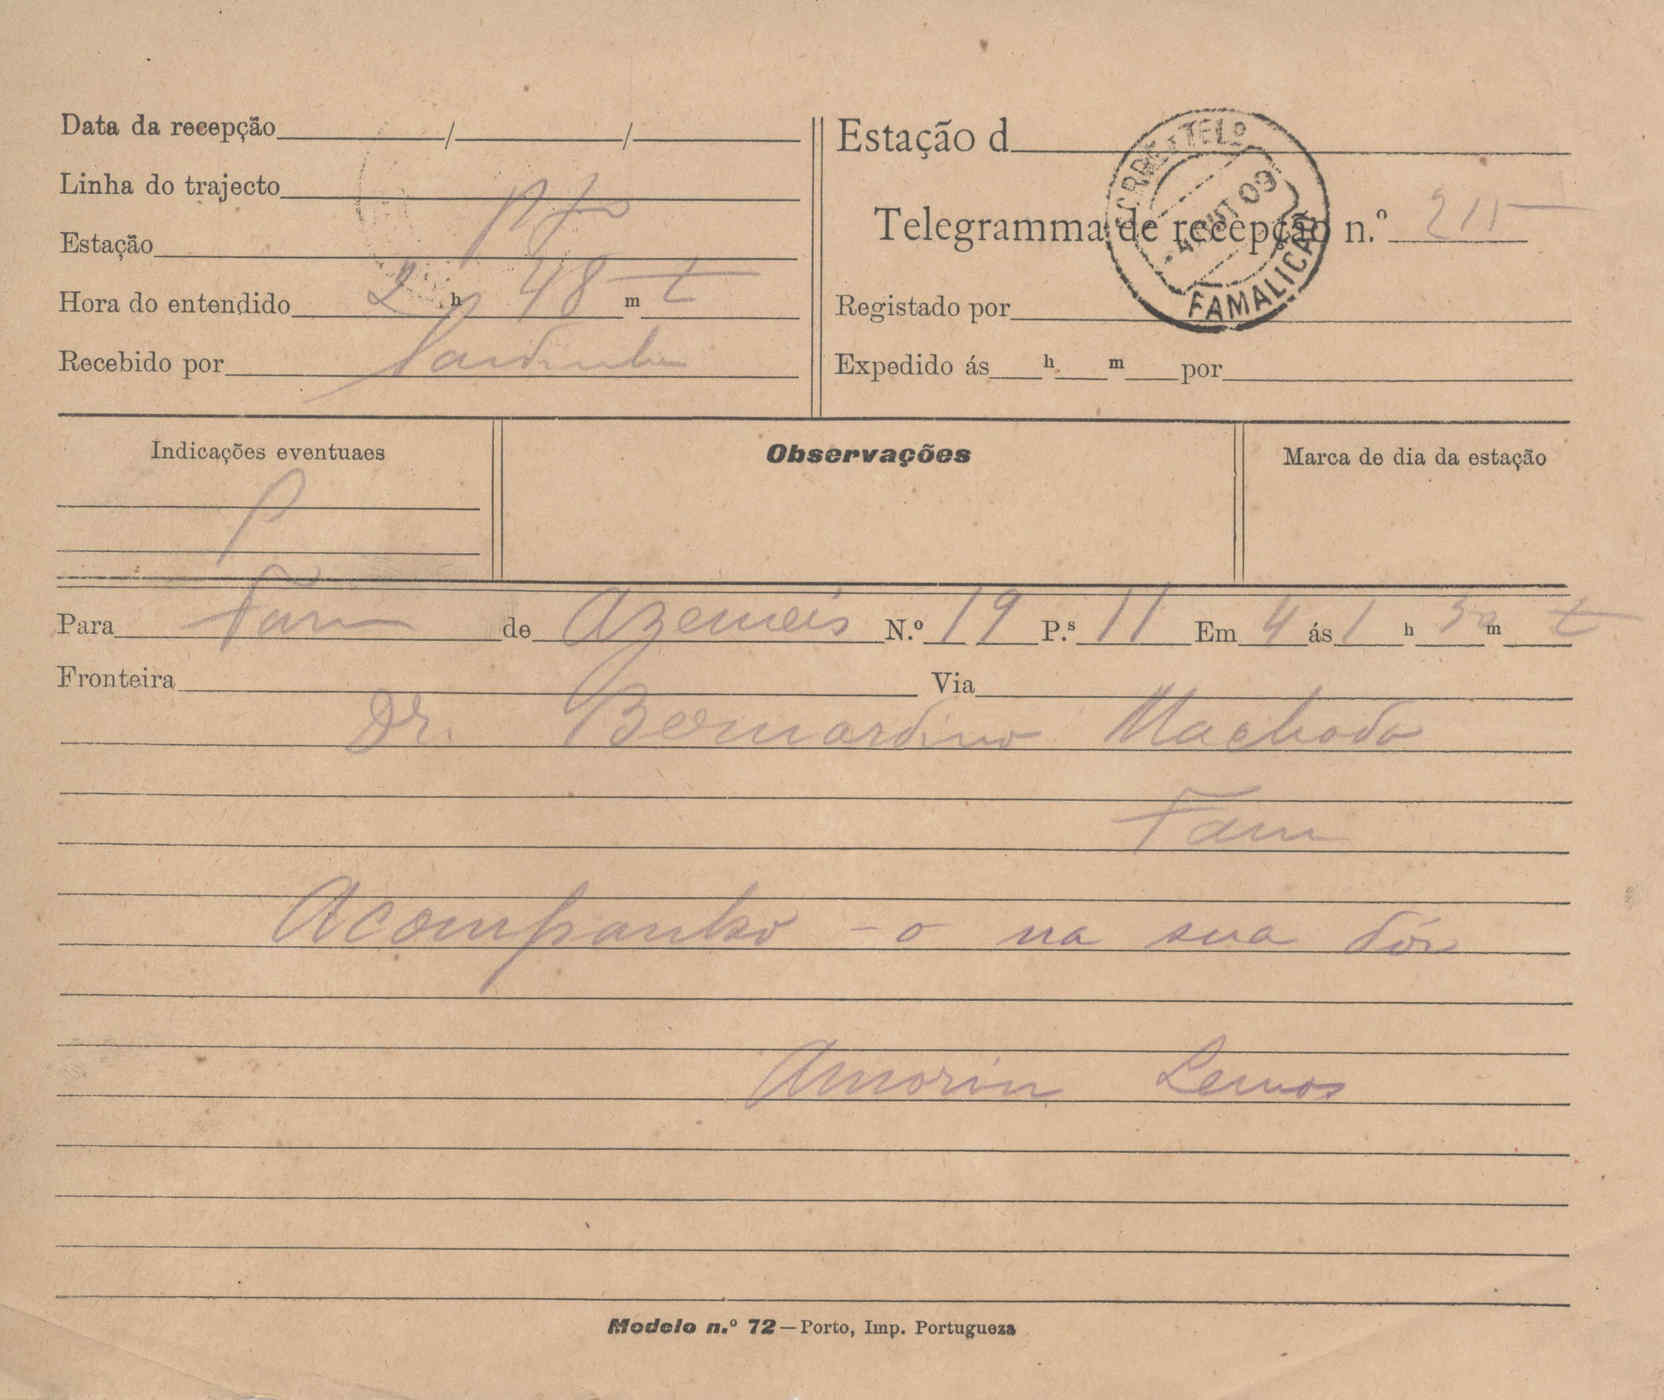 Data da recepção / /
Linha do trajecto
Estação
Hora do entendido 2 h 48 m t
Recebido por
Estação d
Telegramma de recepção n.º 215
Registado por
Expedido ás h m por
CORR. E TELº
4 OUT 09
FAMALICÃO
Indicações eventuaes
P
Observações
Marca de dia da estação
Para Fam de Azemeis N.º 19 P.s 11 Em 4 ás 1 h 30 m t
Fronteira Via
Dr. Bernardino Machado
Fam
Acompanho-o na sua dôr
Amorim Lemos
Modelo n.º 72—Porto, Imp. Portugueza